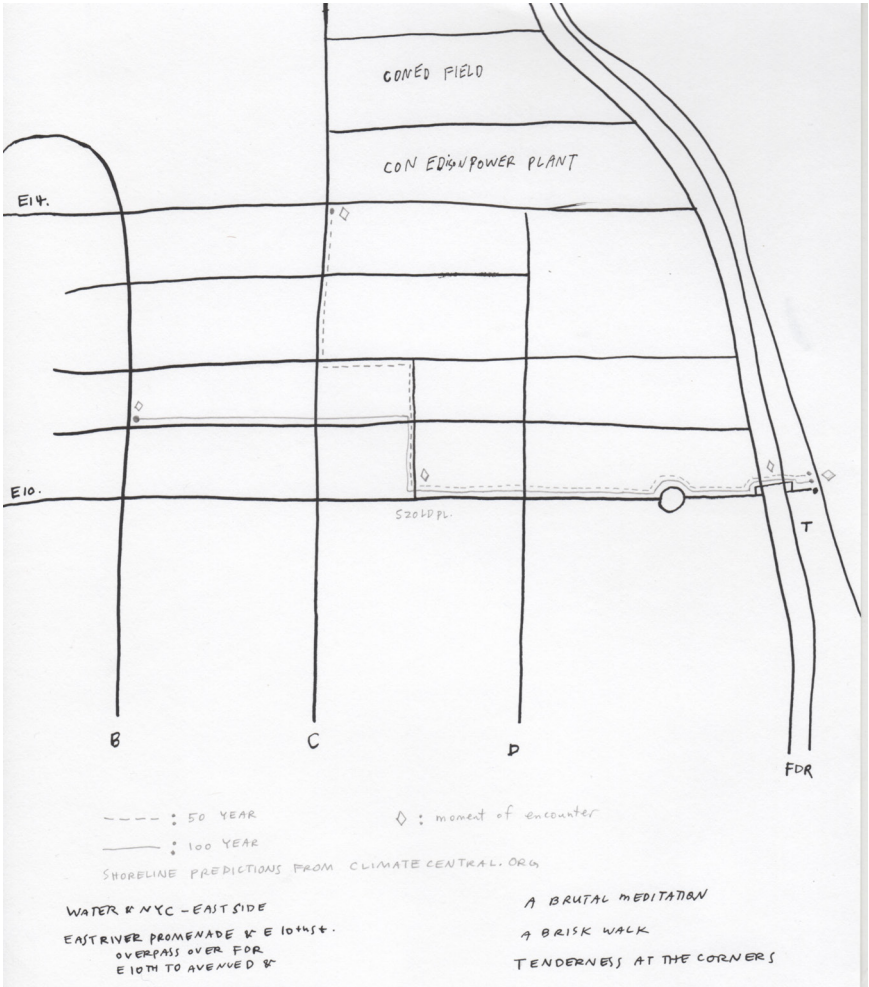 CONED FIELD
CON EDISON POWER PLANT
E14.
E10.
SZOLD PL.
T
B
C
D
FDR
: 50 YEAR
: 100 YEAR
SHORELINE PREDICTIONS FROM CLIMATECENTRAL.ORG
◊ : moment of encounter
WATER & NYC - EAST SIDE
EAST RIVER PROMENADE & E 10th St.
OVERPASS OVER FDR
E 10TH TO AVENUE D &
A BRUTAL MEDITATION
A BRISK WALK
TENDERNESS AT THE CORNERS